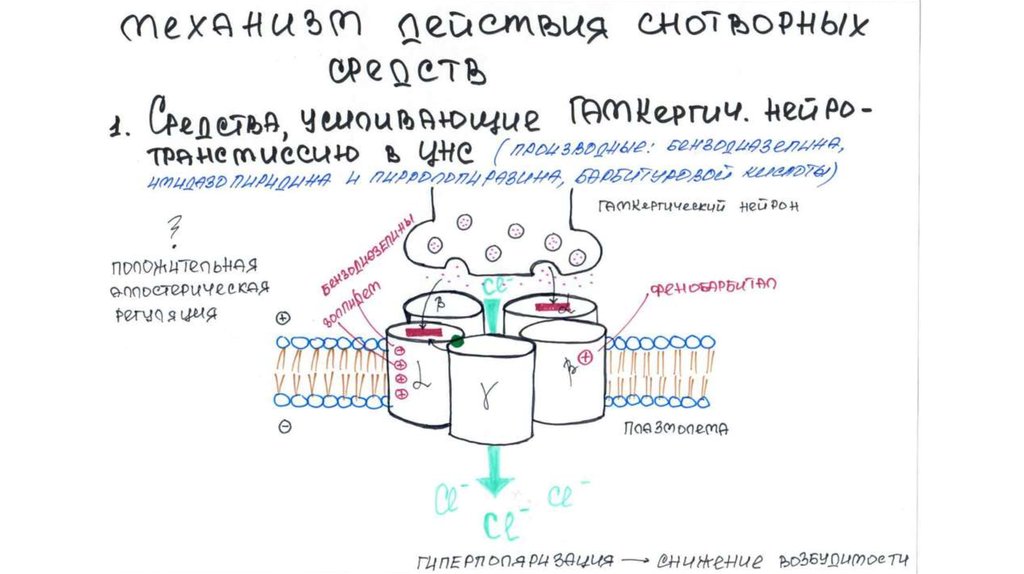 МЕХАНИЗМ ДЕЙСТВИЯ СНОТВОРНЫХ
СРЕДСТВ
1. СРЕДСТВА, УСИЛИВАЮЩИЕ ГАМКЕРГИЧ. НЕЙРО-
ТРАНСМИССИЮ В ЦНС (ПРОИЗВОДНЫЕ: БЕНЗОДИАЗЕПИНА,
ИМИДАЗОПИРИДИНА И ПИРРОЛОПИРАЗИНА, БАРБИТУРОВОЙ КИСЛОТЫ)
ГАМКЕРГИЧЕСКИЙ НЕЙРОН
?
ПОЛОЖИТЕЛЬНАЯ
АЛЛОСТЕРИЧЕСКАЯ
РЕГУЛЯЦИЯ
БЕНЗОДИАЗЕПИНЫ
ЗОЛПИДЕМ
Cl⁻
ФЕНОБАРБИТАЛ
β
α
+
+
+
+
+
+
α
γ
β
−
ПЛАЗМОЛЕМА
Cl⁻
Cl⁻
Cl⁻
ГИПЕРПОЛЯРИЗАЦИЯ → СНИЖЕНИЕ ВОЗБУДИМОСТИ